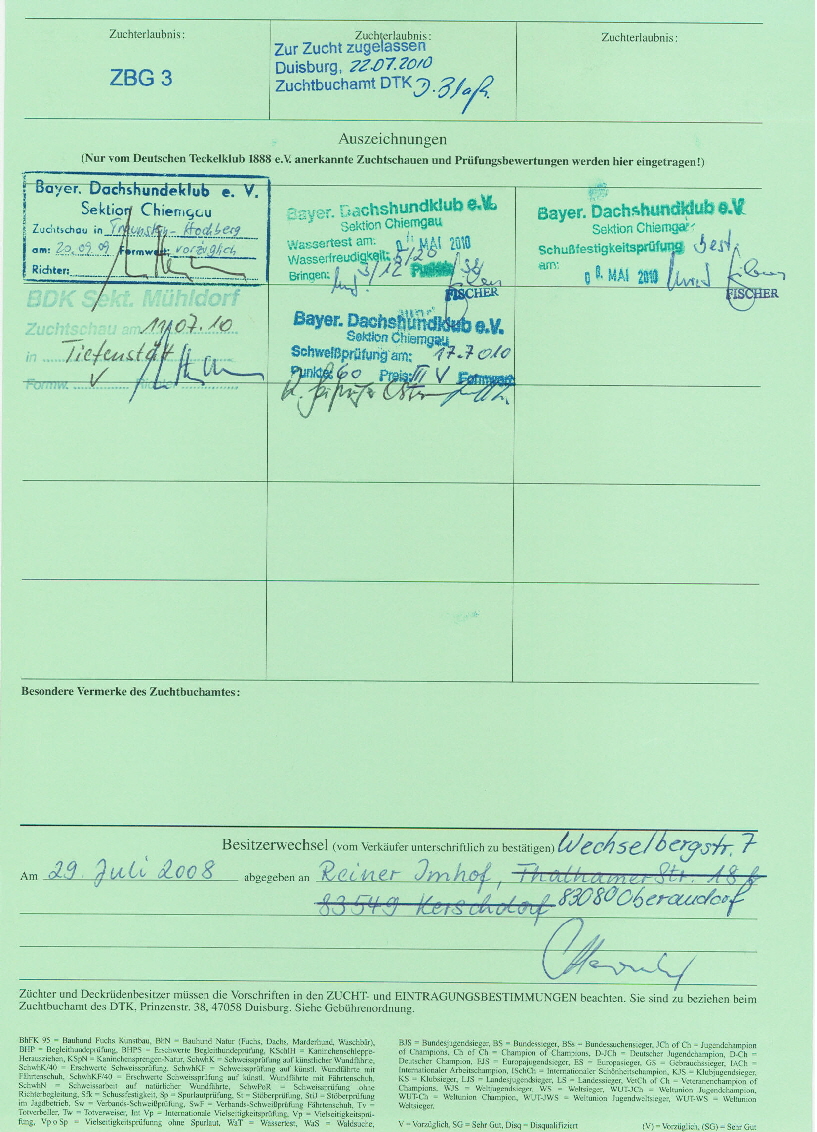 Zuchterlaubnis: Zuchterlaubnis: Zuchterlaubnis:
ZBG 3
Zur Zucht zugelassen
Duisburg, 22.07.2010
Zuchtbuchamt DTK
Auszeichnungen
(Nur vom Deutschen Teckelklub 1888 e.V. anerkannte Zuchtschauen und Prüfungsbewertungen werden hier eingetragen!)
Bayer. Dachshundeklub e. V.
Sektion Chiemgau
Zuchtschau in Traunstein - Hochberg
am: 20.09.09 Formwert: vorzüglich
Richter:
Bayer. Dachshundklub e.V.
Sektion Chiemgau
Wassertest am: MAI 2010
Wasserfreudigkeit:
Bringen:
FISCHER
Bayer. Dachshundklub e.V.
Sektion Chiemgau
Schußfestigkeitsprüfung best.
am: 0 MAI 2010
FISCHER
BDK Sekt. Mühldorf
Zuchtschau am 11.07.10
in Tiefenstätt
Formw. V
Bayer. Dachshundklub e.V.
Sektion Chiemgau
Schweißprüfung am: 17.7.010
Punkte: 60 Preis: III V Formwert
Besondere Vermerke des Zuchtbuchamtes:
Besitzerwechsel (vom Verkäufer unterschriftlich zu bestätigen) Wechselbergstr. 7
Am 29. Juli 2008 abgegeben an Reiner Imhof, Thalhamer Str. 18
83549 Kerschdorf 83080 Oberaudorf
Züchter und Deckrüdenbesitzer müssen die Vorschriften in den ZUCHT- und EINTRAGUNGSBESTIMMUNGEN beachten. Sie sind zu beziehen beim
Zuchtbuchamt des DTK, Prinzenstr. 38, 47058 Duisburg. Siehe Gebührenordnung.
BhFK 95 = Bauhund Fuchs Kunstbau, BhN = Bauhund Natur (Fuchs, Dachs, Marderhund, Waschbär),
BHP = Begleithundeprüfung, BHPS = Erschwerte Begleithundeprüfung, KSchlH = Kaninchenschleppe-
Herausziehen, KSpN = Kaninchensprenger-Natur, SchwhK = Schweissprüfung auf künstlicher Wundfährte,
SchwhK/40 = Erschwerte Schweissprüfung, SchwhKF = Schweissprüfung auf künstl. Wundfährte mit
Fährtenschuh, SchwhKF/40 = Erschwerte Schweissprüfung auf künstl. Wundfährte mit Fährtenschuh,
SchwhN = Schweissarbeit auf natürlicher Wundfährte, SchwPoR = Schweissprüfung ohne
Richterbegleitung, Sfk = Schussfestigkeit, Sp = Spurlautprüfung, St = Stöberprüfung, StiJ = Stöberprüfung
im Jagdbetrieb, Sw = Verbands-Schweißprüfung, SwF = Verbands-Schweißprüfung Fährtenschuh, Tv =
Totverbeller, Tw = Totverweiser, Int Vp = Internationale Vielseitigkeitsprüfung, Vp = Vielseitigkeitsprü-
fung, Vp o Sp = Vielseitigkeitsprüfung ohne Spurlaut, WaT = Wassertest, WaS = Waldsuche,
BJS = Bundesjugendsieger, BS = Bundessieger, BSs = Bundessuchensieger, JCh of Ch = Jugendchampion
of Champions, Ch of Ch = Champion of Champions, D-JCh = Deutscher Jugendchampion, D-Ch =
Deutscher Champion, EJS = Europajugendsieger, ES = Europasieger, GS = Gebrauchssieger, IACh =
Internationaler Arbeitschampion, ISchCh = Internationaler Schönheitschampion, KJS = Klubjugendsieger,
KS = Klubsieger, LJS = Landesjugendsieger, LS = Landessieger, VetCh of Ch = Veteranenchampion of
Champions, WJS = Weltjugendsieger, WS = Weltsieger, WUT-JCh = Weltunion Jugendchampion,
WUT-Ch = Weltunion Champion, WUT-JWS = Weltunion Jugendweltsieger, WUT-WS = Weltunion
Weltsieger.
V = Vorzüglich, SG = Sehr Gut, Disq = Disqualifiziert (V) = Vorzüglich, (SG) = Sehr Gut